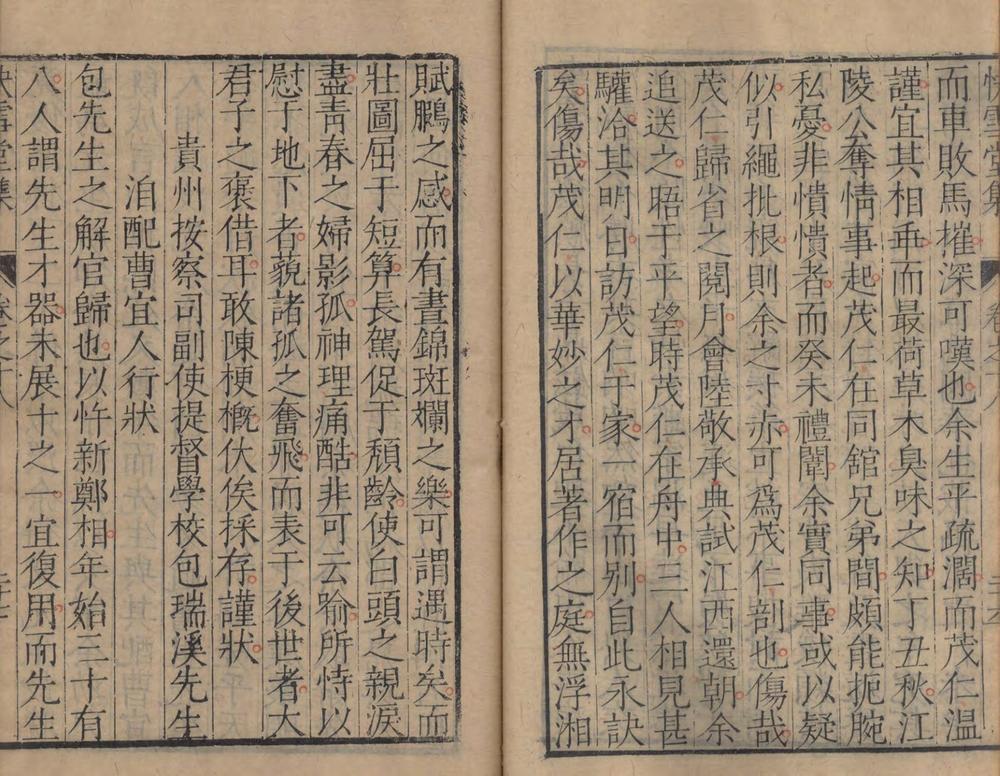 快雪堂集 卷之十八
而車敗馬摧深可嘆也余生平疏濶而茂仁溫
謹宜其相垂而最荷草木臭味之知丁丑秋江
陵公奪情事起茂仁在同舘兄弟間頗能扼腕
私憂非憒憒者而癸未禮闈余實同事或以疑
似引繩批根則余之寸赤可爲茂仁剖也傷哉
茂仁歸省之閱月會陸敬承典試江西還朝余
追送之晤于平望時茂仁在舟中三人相見甚
驩洽其明日訪茂仁于家一宿而别自此永訣
矣傷哉茂仁以華妙之才居著作之庭無浮湘
賦鵩之感而有晝錦斑斕之樂可謂遇時矣而
壯圖屈于短算長駕促于頹齡使白頭之親淚
盡靑春之婦影孤神理痛酷非可云喻所恃以
慰于地下者藐諸孤之奮飛而表于後世者大
君子之褒借耳敢陳梗概伏俟採存謹狀
貴州按察司副使提督學校包瑞溪先生
洎配曹宜人行狀
包先生之解官歸也以忤新鄭相年始三十有
八人謂先生才器未展十之一宜復用而先生
快雪堂集 卷之十八